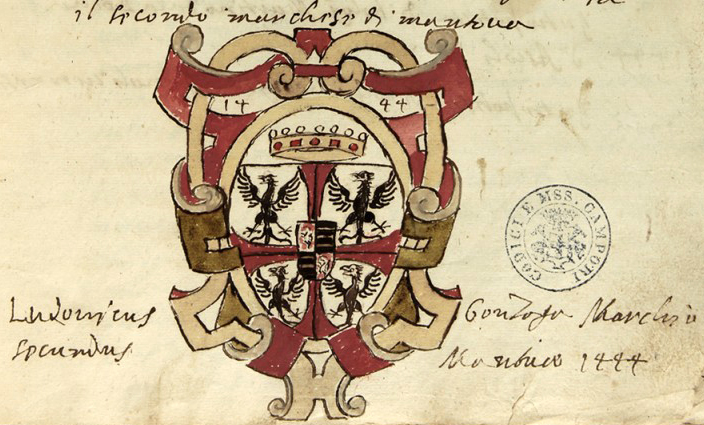 il secondo marchese di mantova
14 44
CODICI E MSS. CAMPORI
Ludovicus
secundus
Gonzaga Marchio
Mantuae 1444